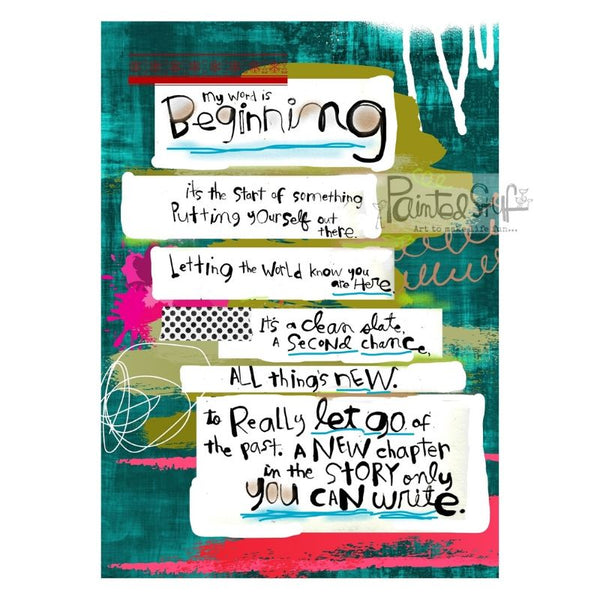 my word is
Beginning
it's the start of something
Putting yourself out
there.
Painted Stuff
Art to make life fun...
Letting the world know you
are Here.
It's a clean slate,
A second chance,
ALL thing's NEW.
to Really let go of
the past. A NEW chapter
in the STORY only
YOU CAN write.